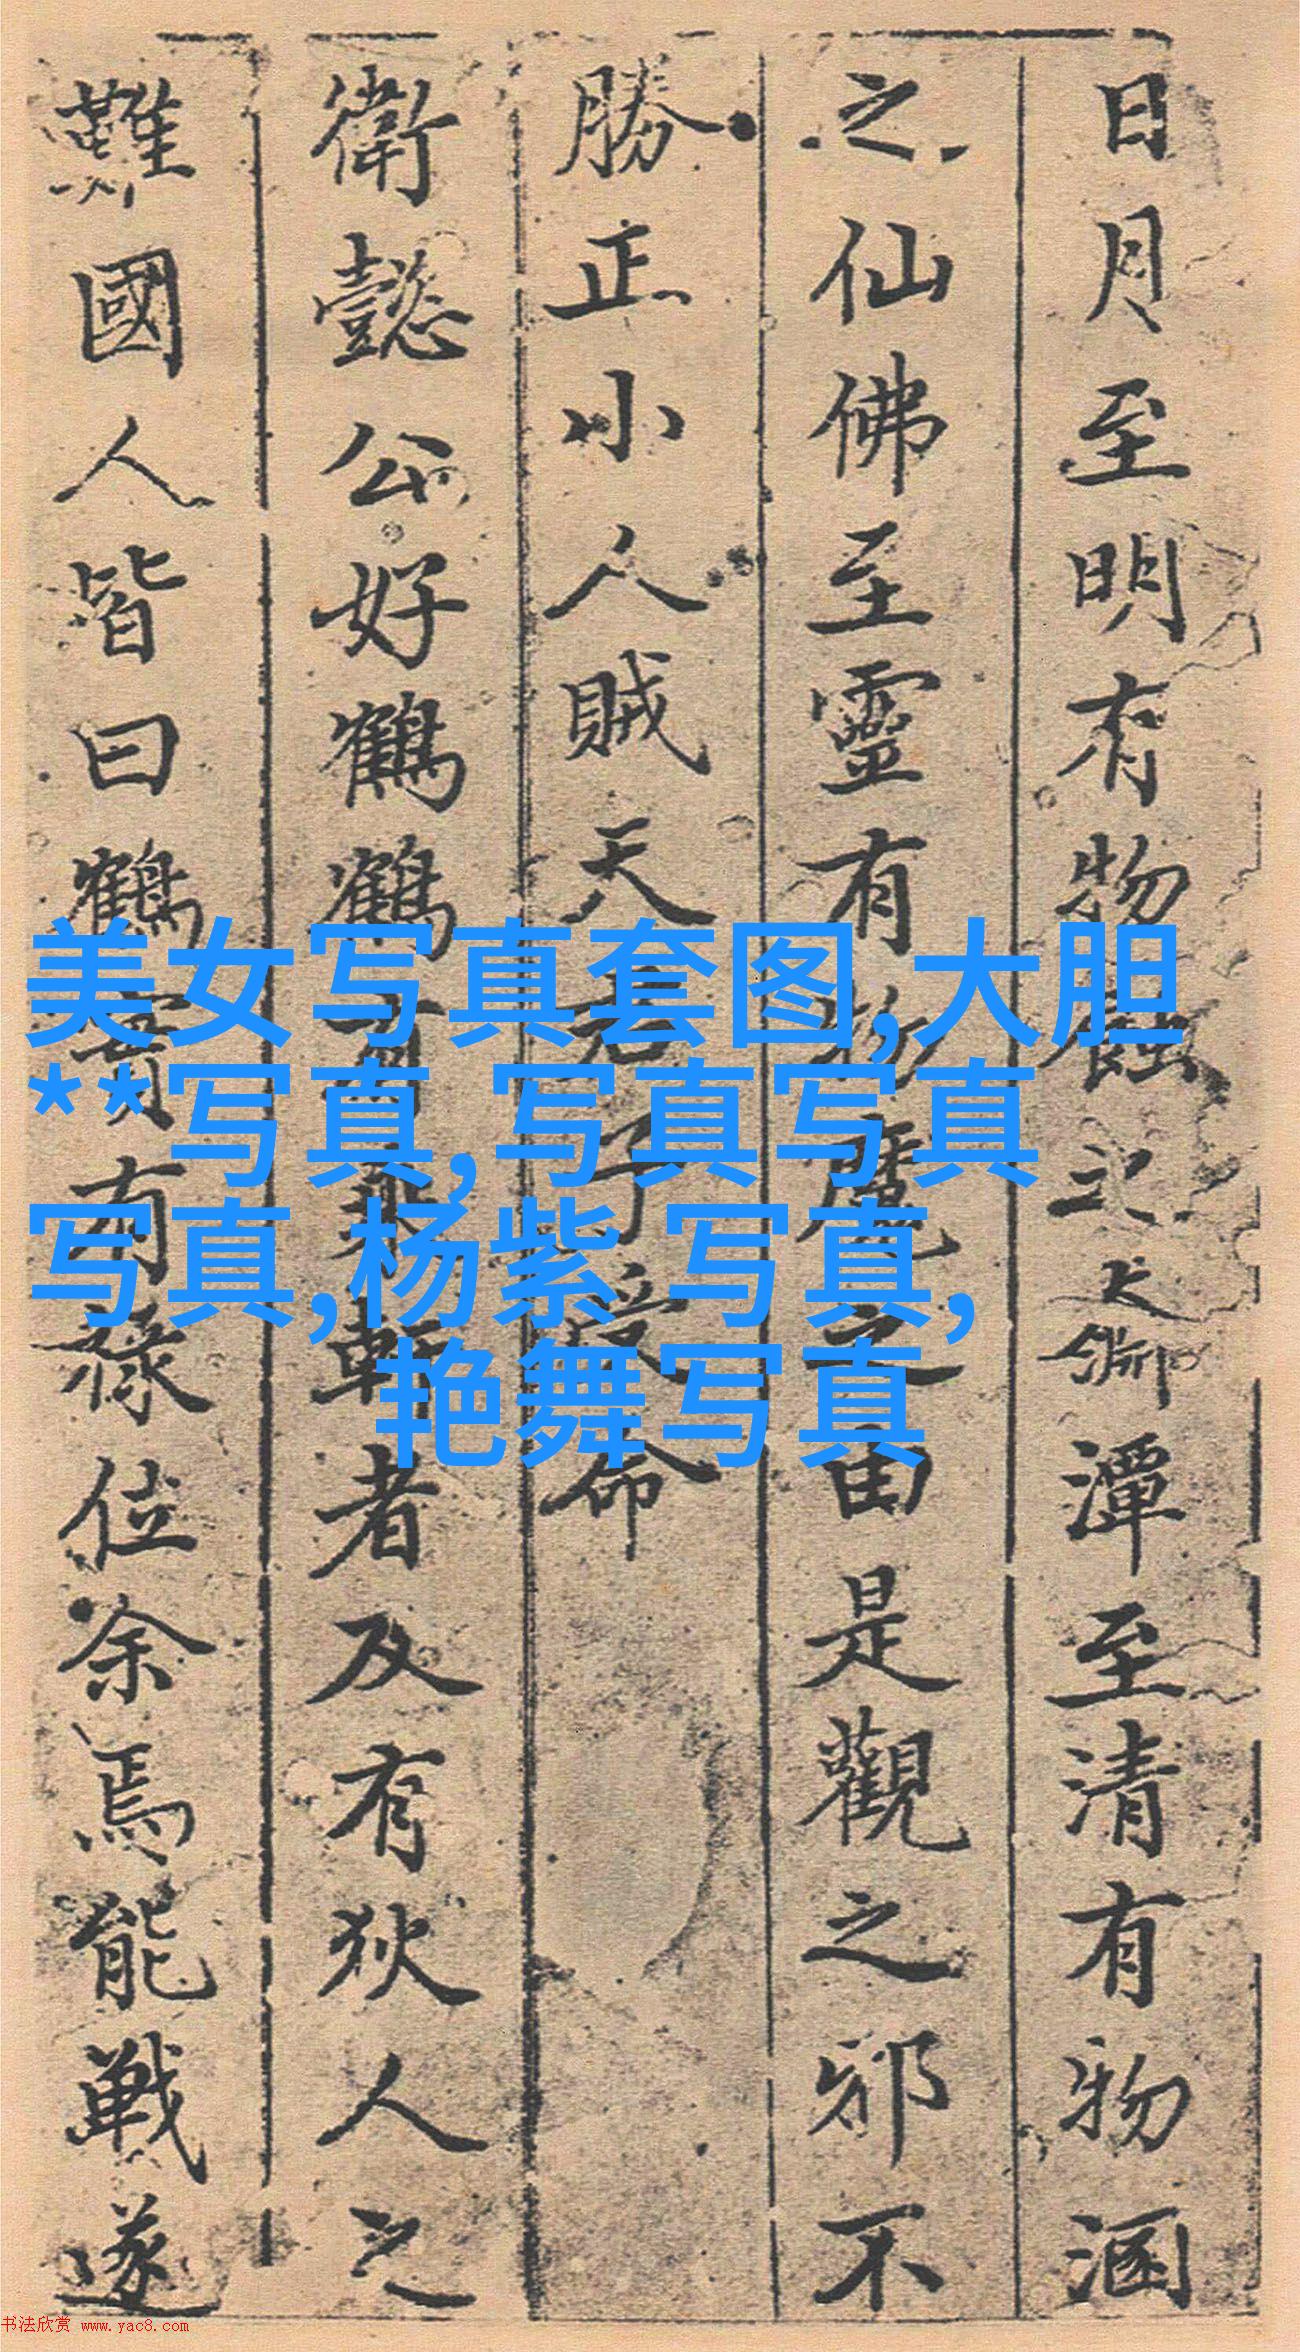 日月至明有物蝕之大齋潭至清有物溷
之仙佛至靈有物魔之由是觀之邪不
勝正小人賊天君子受命
衛懿公好鶴鶴有乘軒者及有狄人之
難國人皆曰鶴實有祿位余焉能戰遂
美女写真套图,大胆
**写真,写真写真
写真,杨紫 写真,
艳舞写真
书法欣赏 www.yac8.com